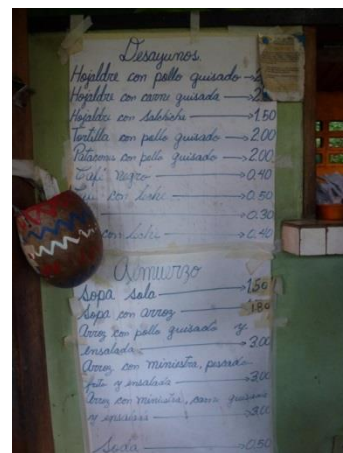 Desayunos.
Hojaldre con pollo guisado → 2
Hojaldre con carne guisada → 2
Hojaldre con Salchicha → 1.50
Tortilla con pollo guisado → 2.00
Patacones con pollo guisado → 2.00
Café Negro → 0.40
con Leche → 0.50
→ 0.30
con Leche → 0.40
Almuerzo
Sopa Sola → 1.50
Sopa con arroz → 1.80
Arroz con pollo guisado y
ensalada → 3.00
Arroz con ministra, pescado
frito y ensalada → 3.00
Arroz con ministra, carne guisada
y ensalada → 3.00
Soda → 0.50